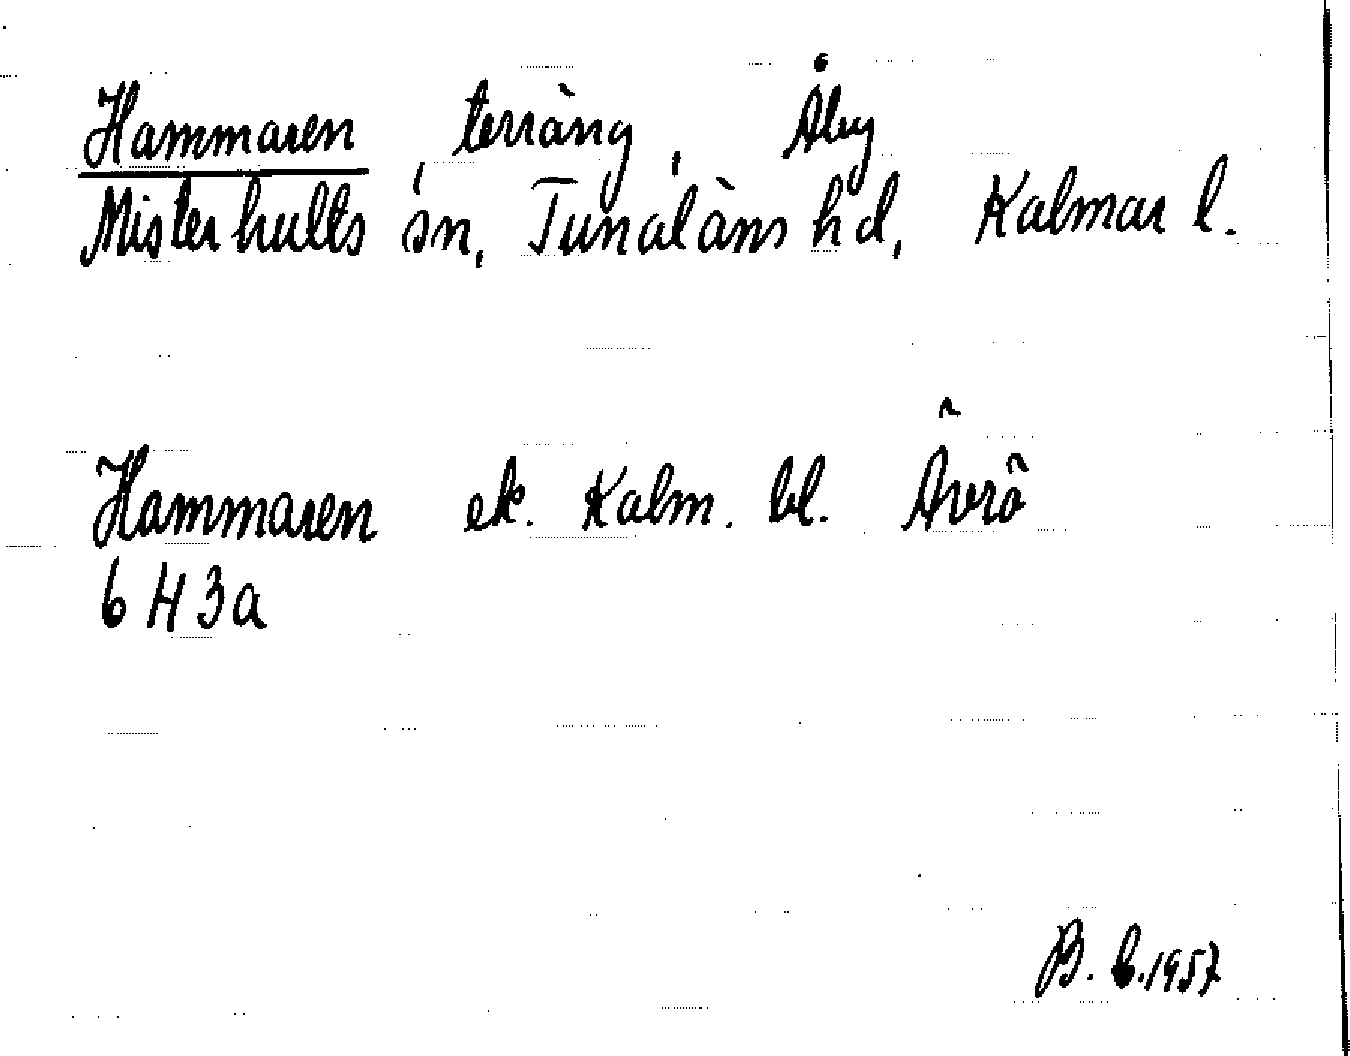 Hammaren, terräng, Åby
Misterhults sn, Tunaläns hd, Kalmar l.
Hammaren ek. Kalm. bl. Ävrö
6 H 3a
B. E. 1957